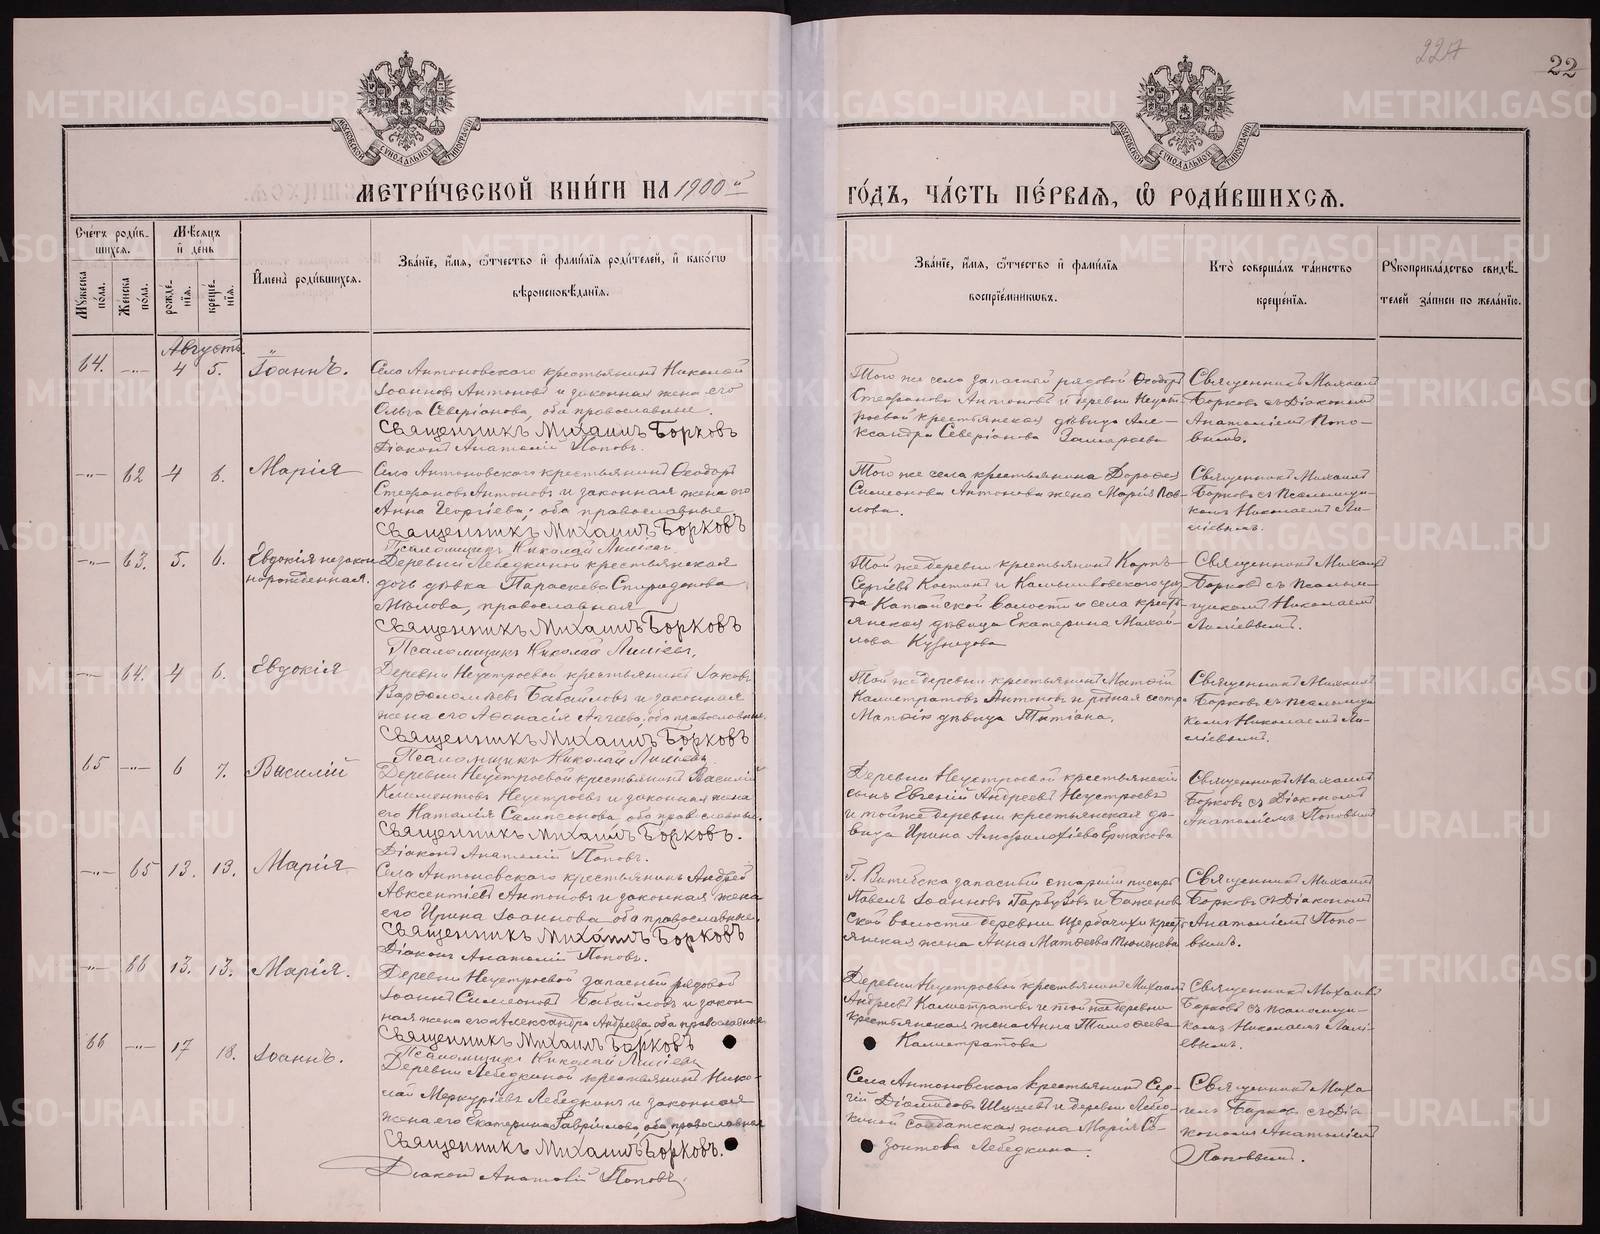 227
22
МЕТРИ́ЧЕСКОЙ КНИ́ГИ НА 1900й
ГО́ДЪ, ЧА́СТЬ ПЕ́РВАѦ, Ѿ РОДИ́ВШИХСѦ.
Сче́тъ роди́в-
шихся.
Мѣ́сяцъ
и де́нь
Му́жеска по́ла.
Же́нска по́ла.
рожде́-
нїя.
креще́-
нїя.
Имена̀ роди́вшихся.
Зва́нїе, и́мя, ѻ́тчество и фами́лїя роди́телей, и како́гѡ
вѣроисповѣ́данїя.
Зва́нїе, и́мя, ѻ́тчество и фами́лїя
воспрїе́мникѡвъ.
Кто̀ соверша́лъ та́инство
креще́нїя.
Рукоприкла́дство свидѣ́-
телей за́писи по жела́нїю.
Августъ
64. —„— 4 5. Іоаннъ.
Села Антоновскаго крестьянинъ Николай
Іоанновъ Антоновъ и законная жена его
Ольга Северіонова, оба православные.
Священникъ Михаилъ Борковъ
Діаконъ Анатолій Поповъ.
Того же села запасной рядовой Ѳеодоръ
Стефановъ Антоновъ и деревни Неуст-
роевой крестьянская дѣвица Але-
ксандра Северіонова
Священникъ Михаилъ
Борковъ съ Діакономъ
Анатоліемъ Попо-
вымъ.
—„— 62 4 6. Марія
Села Антоновскаго крестьянинъ Ѳеодоръ
Стефановъ Антоновъ и законная жена его
Анна Георгіева; оба православные
Священникъ Михаилъ Борковъ
Псаломщикъ Николай
Того же села крестьянина Дорофея
Симеонова Антонова жена Марія Пав-
лова.
Священникъ Михаилъ
Борковъ съ Псаломщи-
комъ Николаемъ
—„— 63. 5. 6. Евдокія незакон
норожденная.
Деревни Лебедкиной крестьянская
дочь дѣвка Параскева Спиридонова
православная
Священникъ Михаилъ Борковъ
Псаломщикъ Николай
Той же деревни крестьянинъ Карпъ
Сергіевъ Костинъ и Камышловскаго уѣз-
да Катайской волости и села кресть-
янская дѣвица Екатерина Михай-
лова Кузнецова
Священникъ Михаилъ
Борковъ съ Псалом-
щикомъ Николаемъ
— 64. 4 6. Евдокія
Деревни Неустроевой крестьянинъ Іаковъ
Варфоломѣевъ Бабайловъ и законная
жена его Афанасія оба православные.
Священникъ Михаилъ Борковъ
Псаломщикъ Николай
Той же деревни крестьянинъ Матѳій
Калистратовъ Антоновъ и родная сестра
Матѳія дѣвица Татіана.
Священникъ Михаилъ
Борковъ съ Псаломщи
комъ Николаемъ
65 —„— 6 7. Василій
Деревни Неустроевой крестьянинъ Василій
Климентовъ Неустроевъ и законная жена
его Наталія Сампсонова оба православные.
Священникъ Михаилъ Борковъ.
Діаконъ Анатолій Поповъ.
Деревни Неустроевой крестьянскій
сынъ Евгеній Андреевъ Неустроевъ
и той же деревни крестьянская дѣ-
вица Ирина Амфилохіева Ермакова
Священникъ Михаилъ
Борковъ съ Діакономъ
Анатоліемъ Поповымъ
—„— 65 13. 13. Марія
Села Антоновскаго крестьянинъ Андрей
Авксентіевъ Антоновъ и законная жена
его Ирина Іоаннова оба православные.
Священникъ Михаилъ Борковъ
Діаконъ Анатолій Поповъ.
Г. Витебска запасный старшій писарь
Павелъ Іоанновъ Гарбузовъ и Баженов-
ской волости деревни Щербачихи кресть-
янская жена Анна Матѳеева
Священникъ Михаилъ
Борковъ съ Діакономъ
Анатоліемъ Попо-
вымъ.
—„— 66 13. 13. Марія.
Деревни Неустроевой запасный рядовой
Іоаннъ Симеоновъ Бабайловъ и закон-
ная жена его Александра Андреева оба православные
Священникъ Михаилъ Борковъ
Псаломщикъ Николай
Деревни Неустроевой крестьянинъ Михаилъ
Андреевъ Калистратовъ и той же деревни
крестьянская жена Анна Тимофеева
Калистратова
Священникъ Михаилъ
Борковъ съ псаломщи-
комъ Николаемъ
66 —„— 17 18. Іоаннъ.
Деревни Лебедкиной крестьянинъ Нико-
лай Меркуріевъ Лебедкинъ и законная
жена его Екатерина Гавріилова оба православные
Священникъ Михаилъ Борковъ.
Діаконъ Анатолій Поповъ.
Села Антоновскаго крестьянинъ Сер-
гій Діомидовъ и деревни Лебед-
киной Солдатская жена Марія Со-
зонтова Лебедкина.
Священникъ Миха
илъ Борковъ съ Діа
кономъ Анатоліемъ
Поповымъ.
METRIKI.GASO-URAL.RU